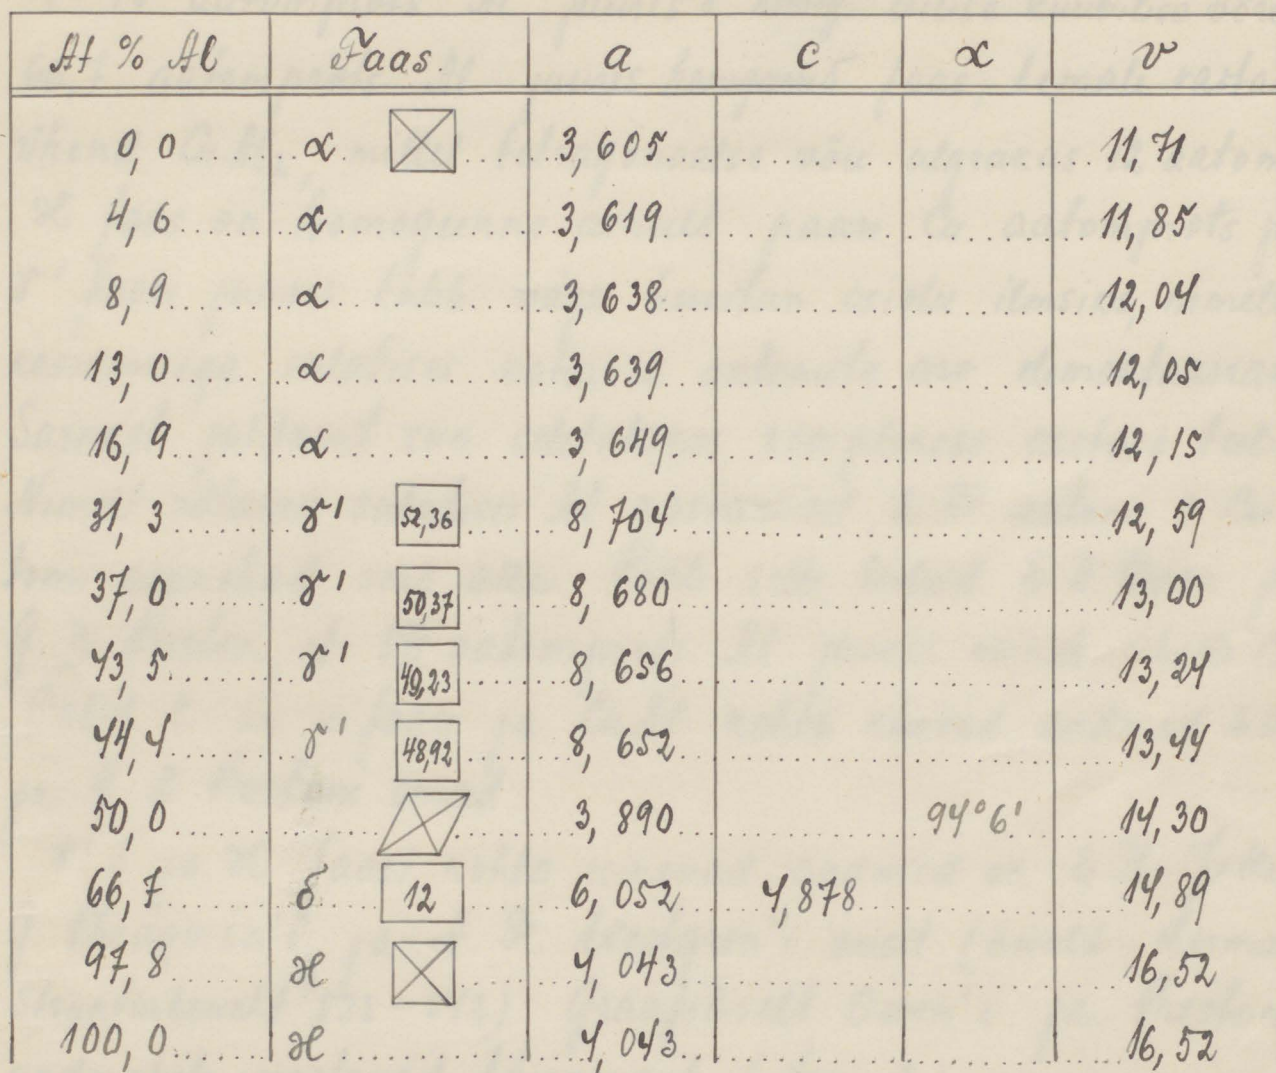 At % Al Faas. a c α v
0,0 α 3,605 11,71
4,6 α 3,619 11,85
8,9 α 3,638 12,04
13,0 α 3,639 12,05
16,9 α 3,649 12,15
31,3 γ' 52,36 8,704 12,59
37,0 γ' 50,37 8,680 13,00
43,5 γ' 49,23 8,656 13,24
44,4 γ' 48,92 8,652 13,44
50,0 3,890 94°6' 14,30
66,7 δ 12 6,052 4,878 14,89
97,8 ϰ 4,043 16,52
100,0 ϰ 4,043 16,52